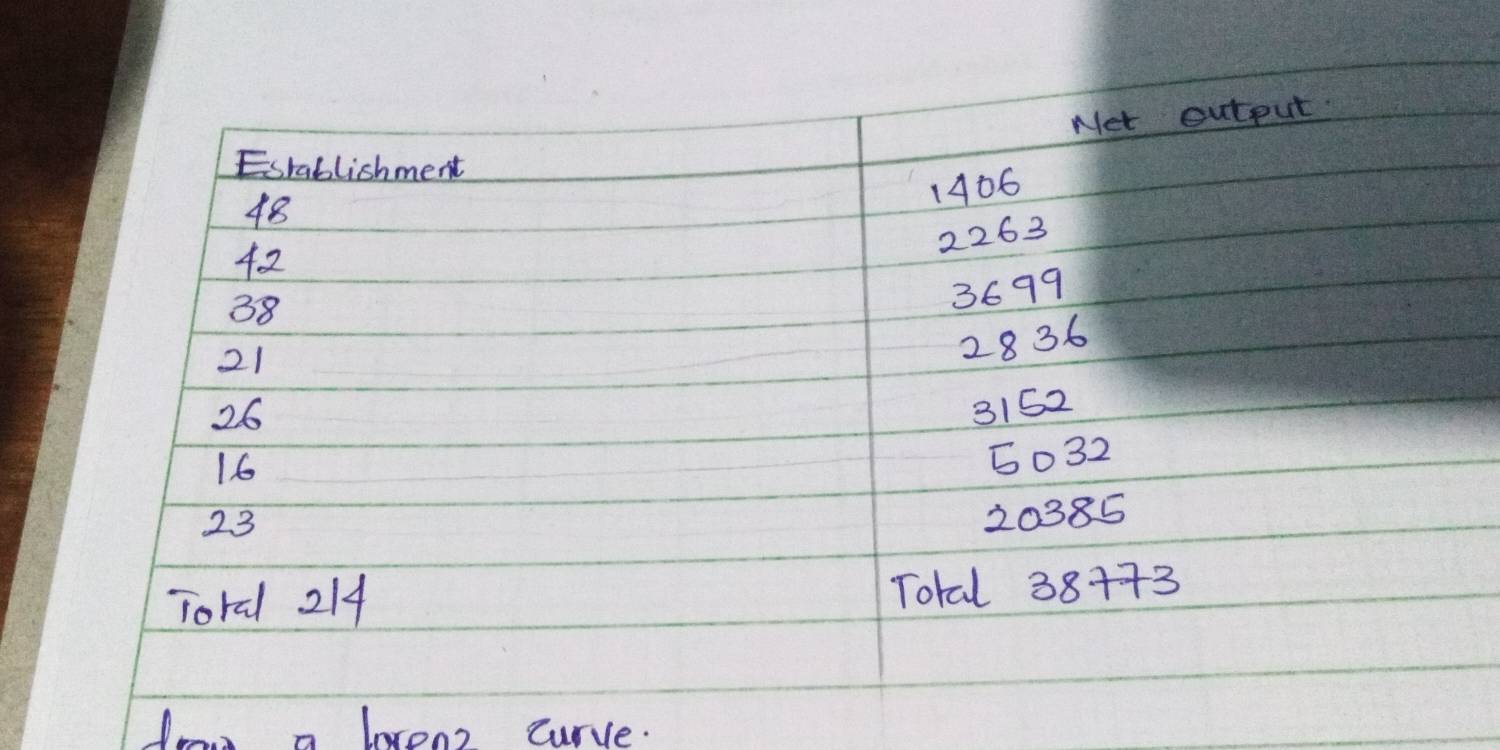 Establishment Net output
48 1406
42 2263
38 3699
21 2836
26 3152
16 5032
23 20385
Total 214 Total 38773
draw a lorenz curve.